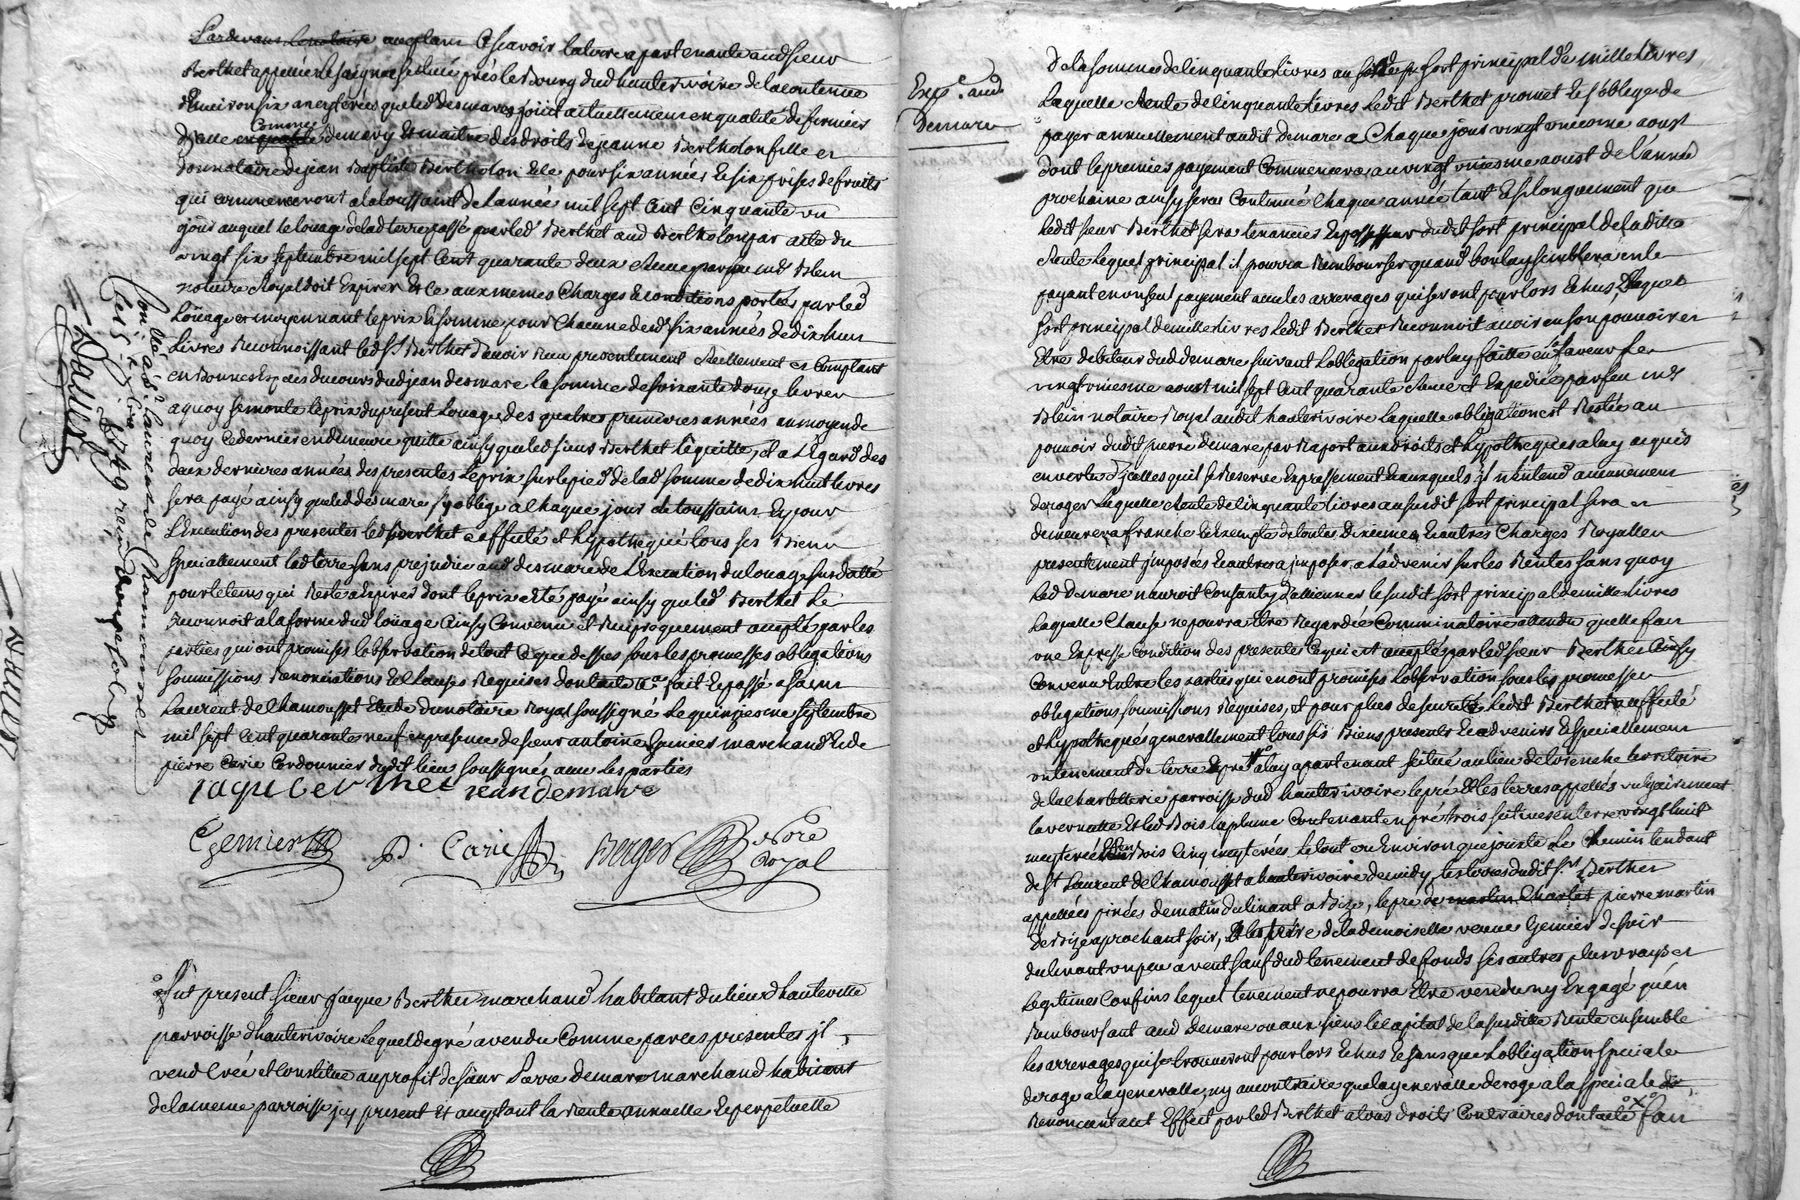 Pardevant le notaire acceptans Ascavoir la terre apartenante aud sieur
Berthet appellée le saignat située près le Bourg dud hauterivoire de la contenue
denviron six ancrées que led desmare jouit actuellement en qualité de fermier
d'jcelle en qualité Comme demary et maitre des droits de jeanne Bertholon fille et
donnataire de jean Baptiste Bertholon et ce pour six années et six prises de fruits
qui commenceront a la toussaint de l'année mil sept cent cinquante un
jour auquel le louage de lad terre passé par led Berthet aud Bertholon par acte du
vingt six septembre mil sept cent quarante deux Receu par feu me Blein
notaire Royal doit Expirer et ce aux memes Charges et conditions portées par led
Louage et moyennant le prix et somme pour Chacune desd six années de dix huit
Livres Reconnoissant led Sr Berthet d'avoir Reçu presentement Reellement et Comptant
en Bonnes Especes du cours dud jean desmare la somme de soixante douze livres
a quoy se monte le prix du present Louage des quatre premieres années au moyen de
quoy ce dernier en demeure quitte ainsy que led sieur Berthet l'equitte, et a l'égard des
deux dernieres années des presentes le prix sur le pied de lad somme de dix huit livres
sera payé ainsy que led desmare s'y oblige a Chaque jour de toussaint Et pour
L'Execution des presentes led Berthet a affecté et hypothequé tous ses Biens
specialement lad terre sans prejudice aud desmare de l'Execution du louage susdatté
pour le tems qui Reste a expirer dont le prix a été payé ainsy que led Berthet le
Reconnoit a la forme dud louage Ainsy Convenu et Reciproquement accepté par les
parties qui ont promis l'observation de tout ce que dessus sous les promesses obligations
soumissions Renonciations et Clauses Requises dont acte fait et passé a Saint
Laurent de Chamousset Etude du notaire Royal soussigné le quinziesme septembre
mil sept Cent quarante neuf en presence de sieur antoine Gemier marchand et de
pierre Carie Cordonnier dudit lieu soussignés avec les parties
jaque berthet jean demare
Gemier P. Carie Berger Nore
Royal
Conllé a St Laurent de Chamousset
1749 reçu douze sols
Fut present sieur jacque Berthet marchand habitant du lieu d'hauteville
parroisse d'hauterivoire lequel de gré a vendu Comme par ces presentes jl
vend Créé et Constitue au profit de sieur Pierre demare marchand habitant
de la meme parroisse jcy present et acceptant la Rente annuelle et perpetuelle
Expe. aud
Demare
de la somme de Cinquante livres au sort principal de mille livres
Laquelle Rente de Cinquante livres Ledit Berthet promet et s'oblige de
payer annuellement audit demare a Chaque jour vingt uniesme aoust
dont le premier payement Commencera au vingt uniesme aoust de l'année
prochaine ainsy sera Continué Chaque année tant et si longuement que
Ledit sieur Berthet sera tenancier et possesseur dudit sort principal de ladite
Rente lequel principal il pourra Rembourser quand bon luy semblera en le
payant en un seul payement avec les arrerages qui seront pour lors Echus, lequel
sort principal de mille livres ledit Berthet Reconnoit avoir en son pouvoir et
Etre debiteur dud demare suivant l'obligation par luy faitte en sa faveur le
vingt uniesme aoust mil sept Cent quarante Receu et Expedié par feu me
Blein notaire Royal audit hauterivoire laquelle obligation est Restée au
pouvoir dudit pierre demare par Raport aux droits et hypotheques a luy acquis
en vertu d'jcelles qu'il se Reserve Expressement auxquels jl n'entend aucunement
deroger laquelle Rente de Cinquante livres au susdit sort principal sera et
demeurera franche et Exempte de toutes Dixiemes et autres Charges Royalles
presentement jmposées et autres a jmposer a l'advenir sur les Rentes sans quoy
Led demare n'auroit Consenty d'alliener le susdit sort principal de mille livres
Laquelle Clause ne pourra Etre Regardée Comminatoire attendu qu'elle fait
une Expresse Condition des presentes ce qui est accepté par led sieur Berthet Ainsy
Convenu Entre les parties qui en ont promis l'observation sous les promesses
obligations soumissions Requises, et pour plus de seureté ledit Berthet a affecté
et hypothequé generallement tous ses Biens presents et advenirs et specialement
un tenement de terre et pré a luy apartenant scitué au lieu de territoire
de la Chasteterie parroisse dud hauterivoire le pré et les terres appellés vulgairement
la vernatte et led Bois la plume Contenant en pré trois en terre vingt huit
meyterées et en Bois Cinq meyterées le tout ou Environ que jouxte Le Chemin tendant
de St Laurent de Chamousset a hauterivoire de midy, les terres dudit Sr Berthet
appellées pinées de matin declinant a Bize, le pré de martin Charles pierre martin
de Bize aprochant soir, et la terre de la demoiselle veuve Gemier de soir
declinant un peu a vent sauf dud tenement de fonds ses autres plus vrays et
Legitimes Confins lequel tenement ne pourra Etre vendu ny Engagé qu'en
Remboursant aud Demare ou aux siens le Capital de la susditte Rente ensemble
les arrerages qui se trouveront pour lors Echus et sans que l'obligation speciale
deroge a la generalle, ny au contraire que la generalle deroge a la speciale
Renonceant a cet Effect par led Berthet a tous droits Contraires dont acte fait